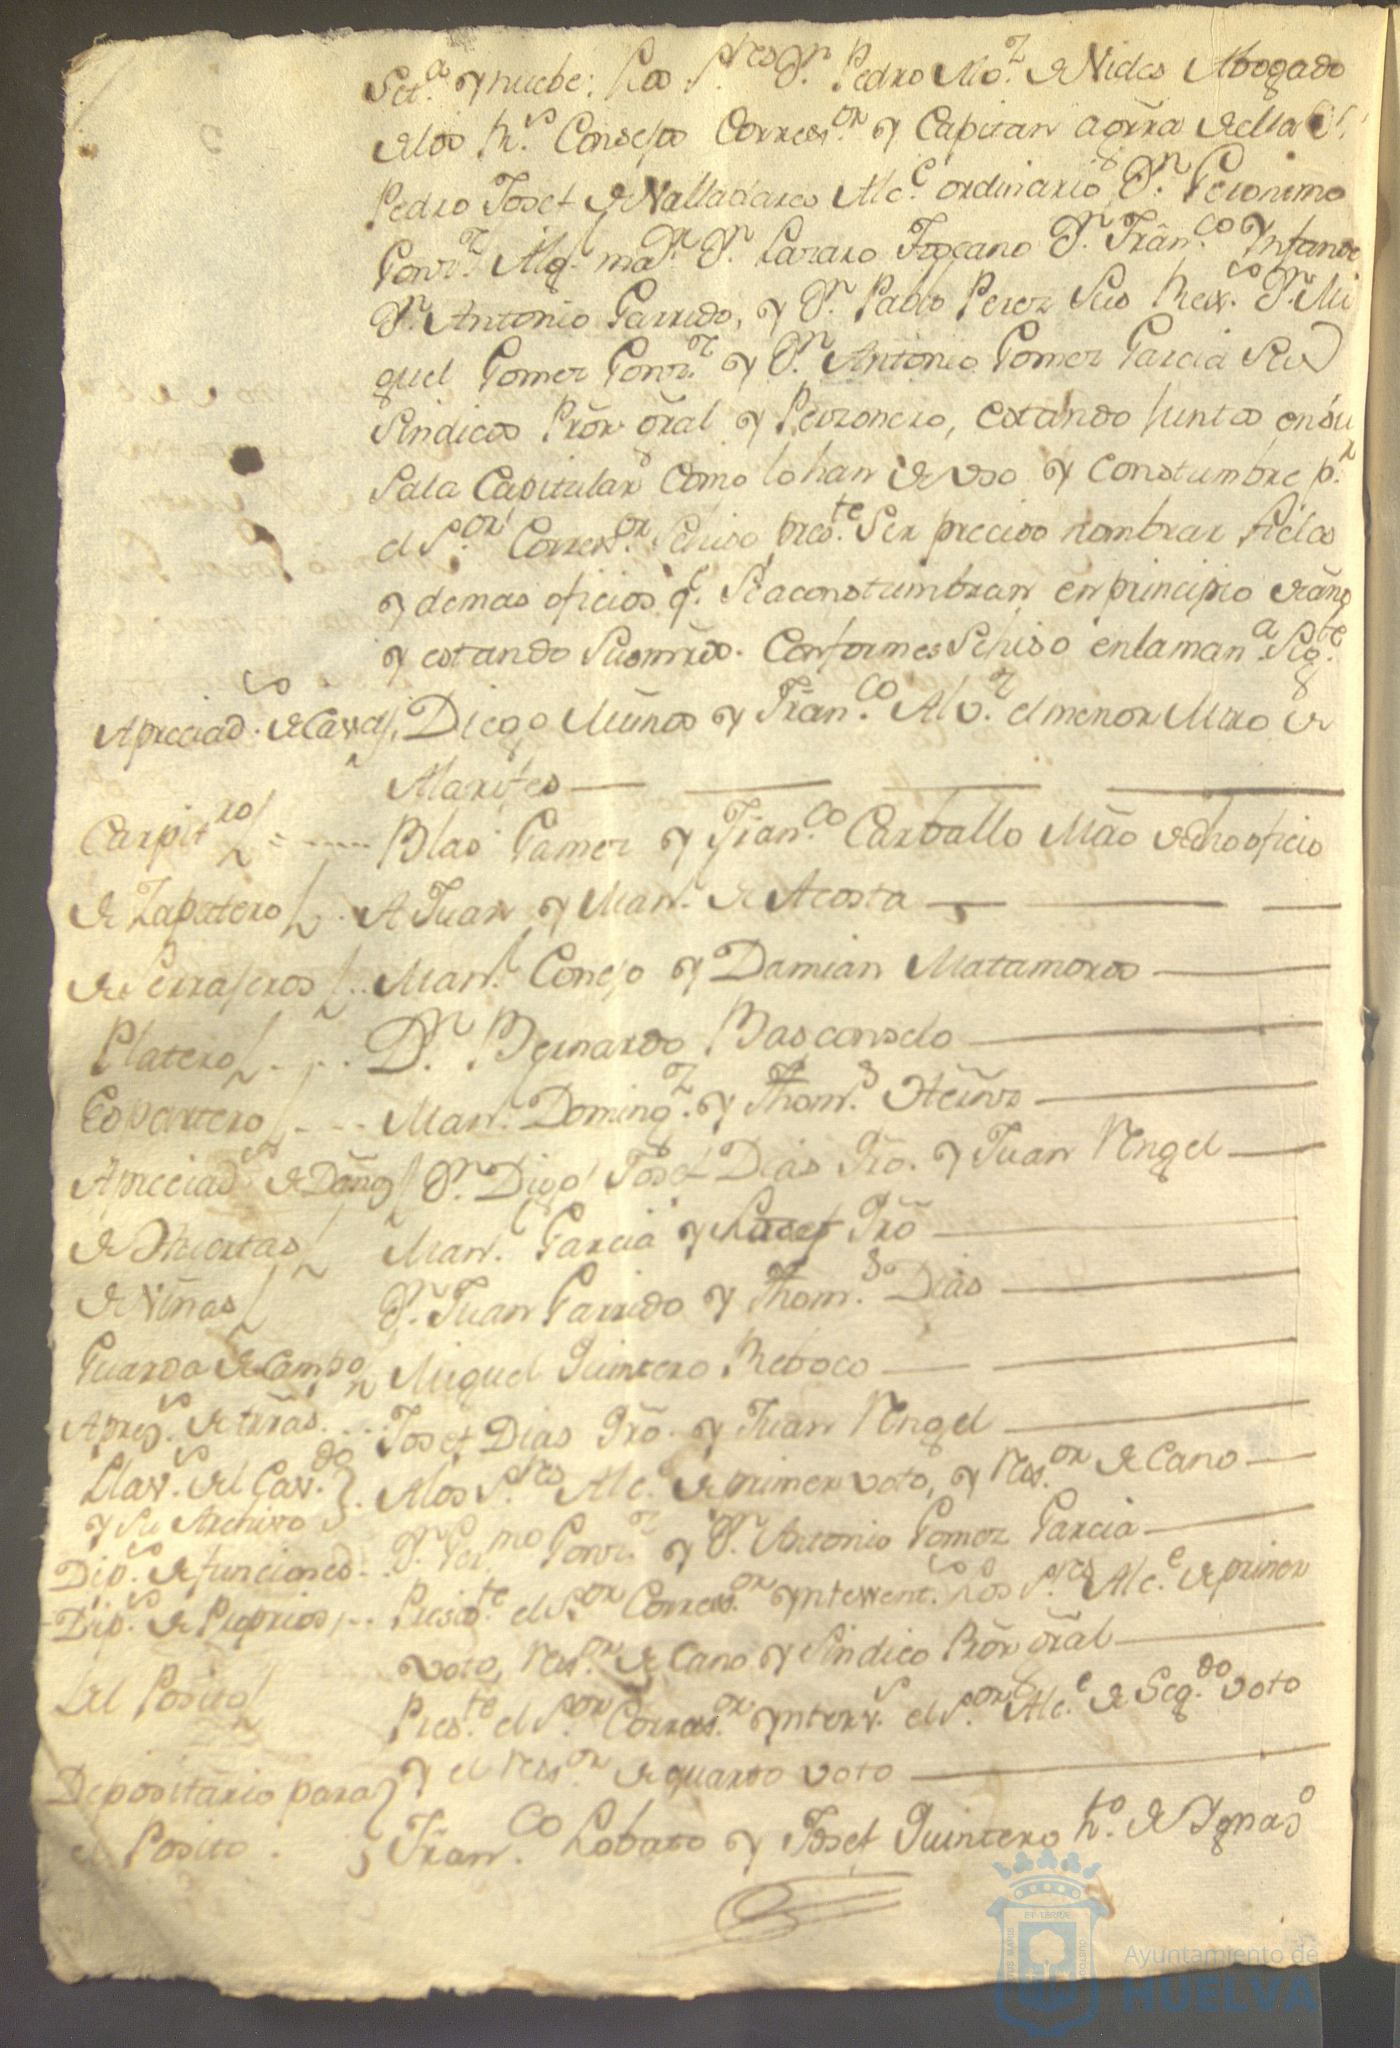 Set.ª y nuebe: Los S.res D.n Pedro Mo.z de Vides Abogado
de los R.s Consejos Corres.or y Capitan a grra de ella
Pedro Josef de Valladares Alc.e ordinario D.n Geronimo
Gonz.z Alg. ma.r D.n Lazaro Toscano D.n Fran.co Ynfante
D.n Antonio Garrido, y D.n Pablo Perez Sus Rex.s D.n Mi
guel Gomez Gonz.z y D.n Antonio Gomez Garcia Sus
Sindicos Prõr gral y Perzonero, estando Juntos en su
Sala Capitular como lo han de uso y constumbre p.r
el S.or Corres.or Se hiso pres.te Ser preciso nombrar fieles
y demas oficios q.e Se aconstumbran en principio de año
y estando Sus mrds. Conformes Se hiso en la man.a Sig.te
Apreciad.s de Cavas Diego Muños y Fran.co Alv.z el menor Mro de
Alarifes
Carpit.ros Blas Gamez y Fran.co Carballo Mão de dho oficio
de Zapatero A Juan y Man.l de Acosta
de Serrajeros Man.l Conejo y Damian Matamoros
Platero D.n Bernardo Basconselo
Espartero Man.l Doming.z y Thom.s
Apreciad.s de Daños D.n Digo Josef Dias Pro. y Juan Rengel
de Huertas Man.l Garcia y Josef Pro
de Viñas D.n Juan Garrido y Thom.s Dias
Guarda de Campo Miguel Quintero Reboco
Aprez.s de trras Josef Dias Pro. y Juan Rengel
Llav.s del Cav.do A los S.res Alc.e de primer voto, y Res.or de Cano
y Su Archivo
Dip.s de funciones D.n Ger.mo Gonz.z y D.n Antonio Gomez Garcia
Dip.s de Proprios Presid.te el S.or Corres.or Yntervent.s Los S.res Alc.e de primer
voto, Res.or de Cano y Sindico Prõr gral
del Posito Pres.te el S.or Corres.or Ynterv.s el S.or Alc.e de Seg.do voto
y el Res.or de quarto voto
Depositario para
el Posito Fran.co Lobato y Josef Quintero h.to de Ygnas.o
Ayuntamiento de
HUELVA